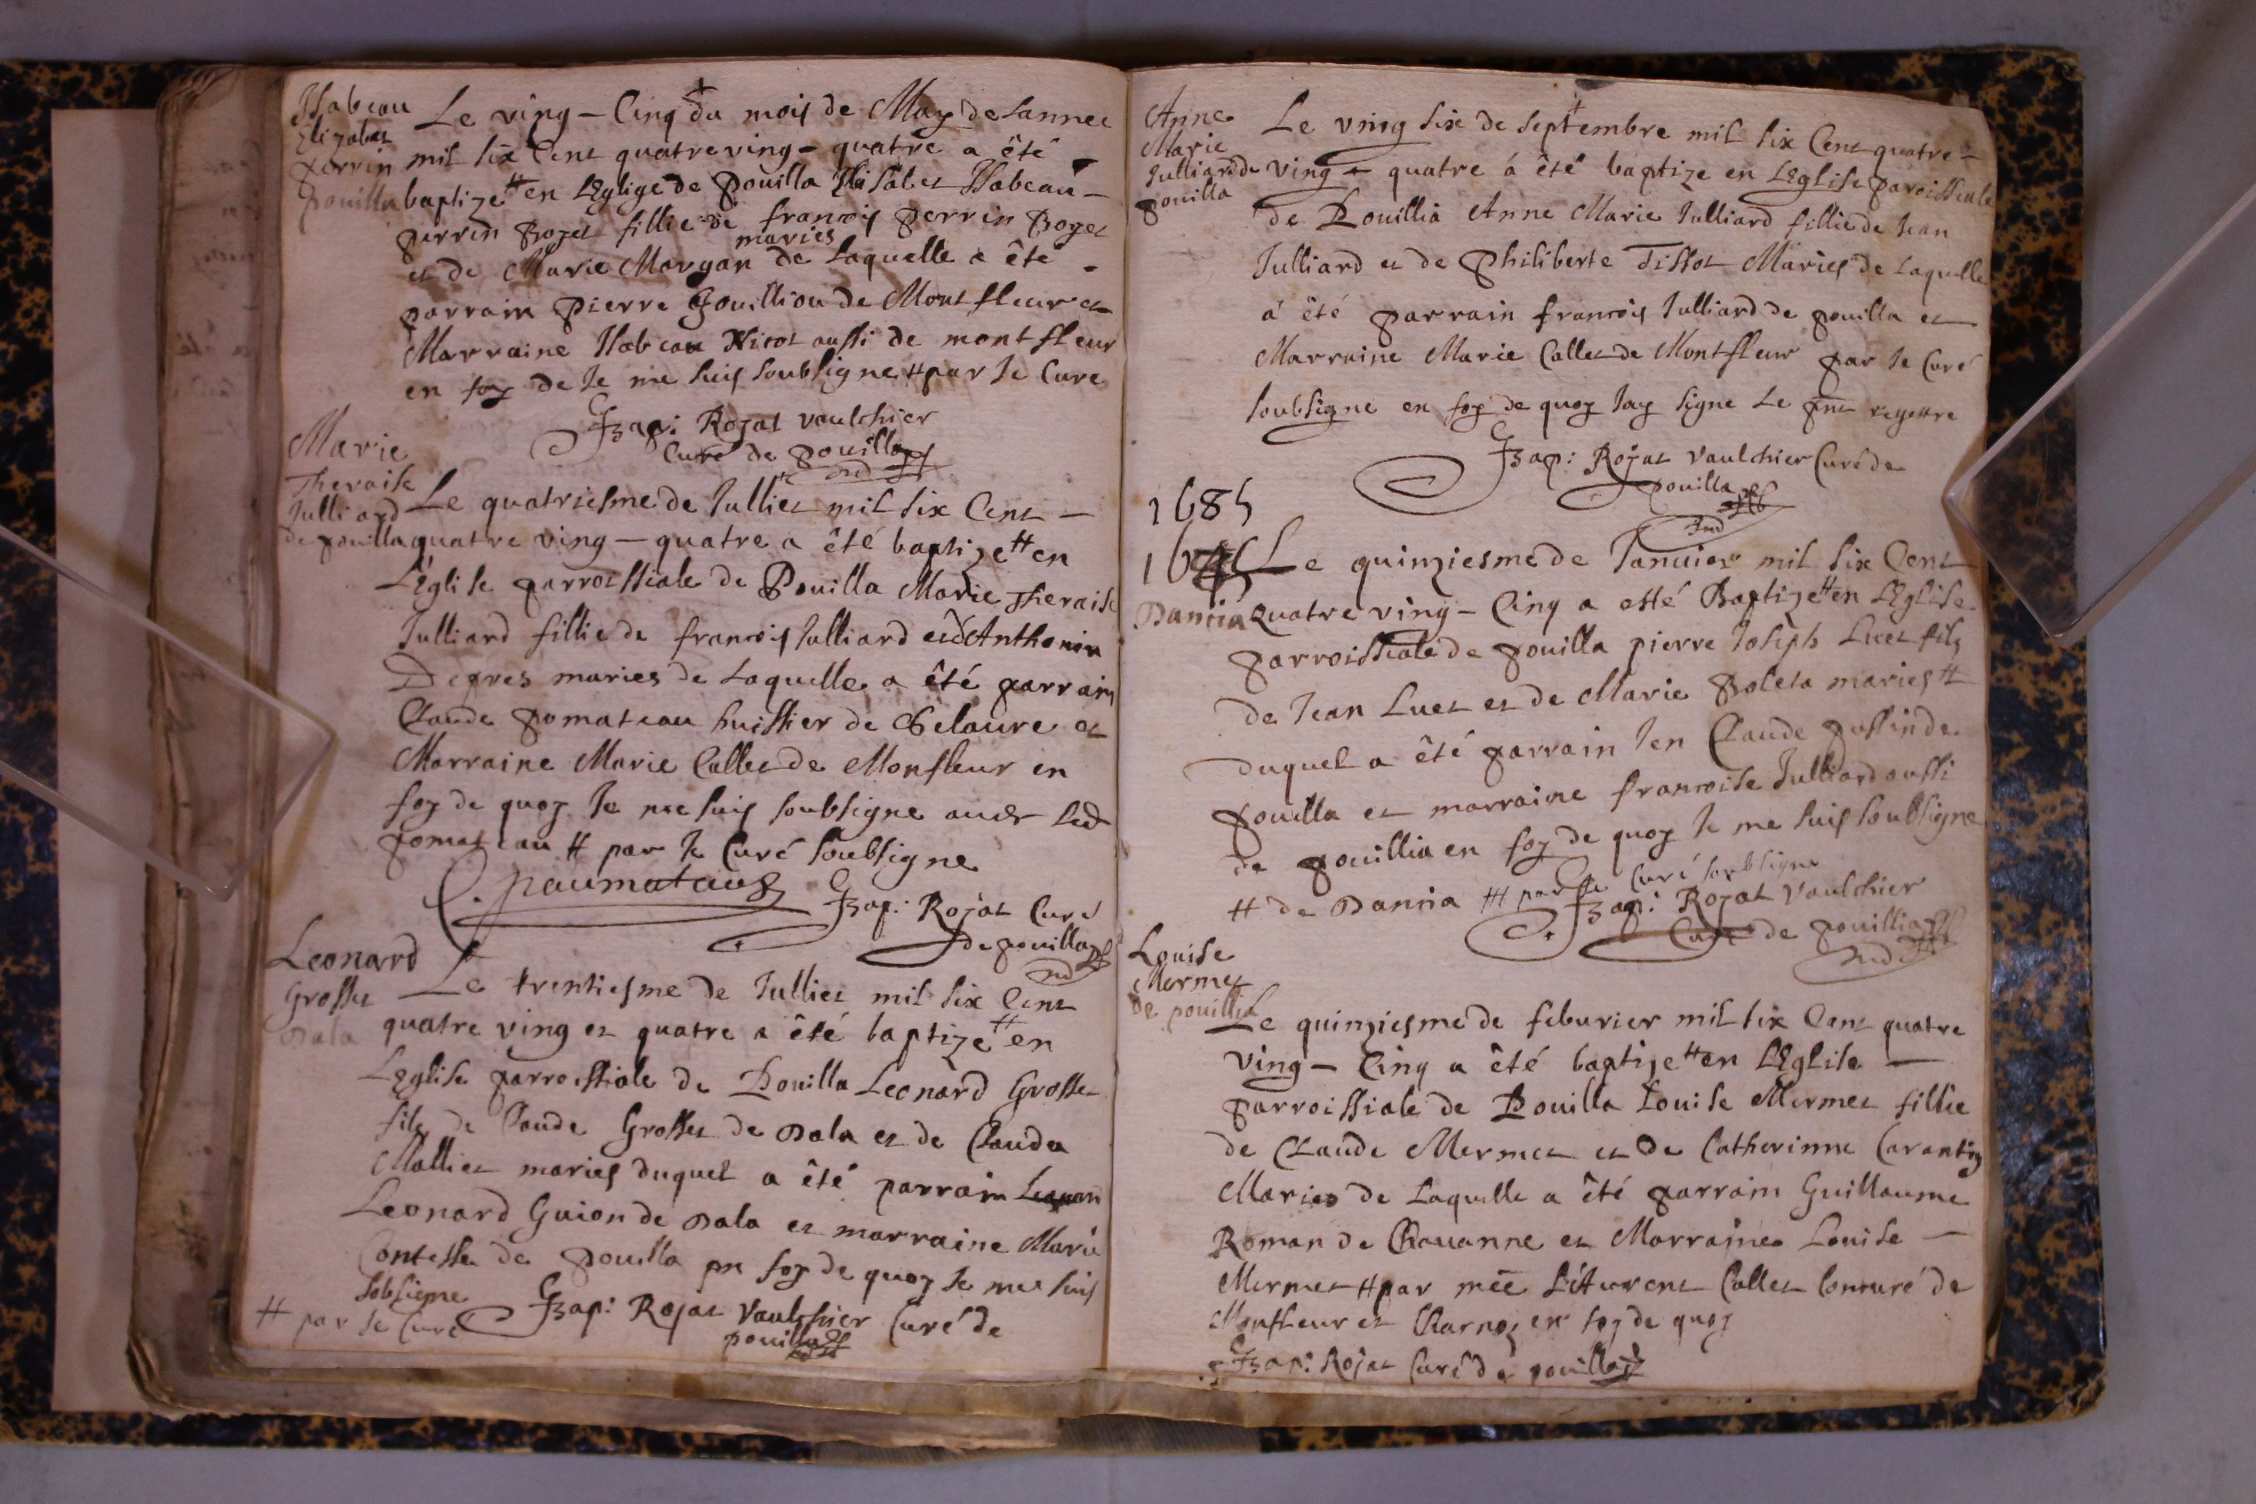 Isabeau
Elizabet
perrin
pouilla
Le ving - Cinq du mois de May de Lannee
mil six Cent quatre ving - quatre a été
baptize # en LEglige de pouilla Elisabet Isabeau -
perrin Boyet fillie de francois perrin Boyet
maries
et de Marie Morgan de Laquelle a été -
parrain pierre Gouilliou de Montfleur et
Marraine Isabeau Nicot aussi de montfleur
en foy de Je me suis soubsigne # par Je Cure
Bap: Rojat vaulchier
Curé de pouilla
Marie
Theraise
Julliard
de pouilla
Le quatriesme de Julliet mil six Cent -
quatre ving - quatre a été baptize # en
LEglise parroissiale de Pouilla Marie Theraise
Julliard fillie de francois Julliard et d'Anthonin
Depres maries de Laquelle a été parrain
Claude pomateau huissier de Gelaure et
Marraine Marie Callet de Monfleur en
foy de quoy Je me suis soubsigne avec Led
pomateau # par Je Curé soubsigne
C. paumateaux Bap: Rojat Curé
de pouilla
Leonard
Grosset
Dala
Le trentiesme de Julliet mil six Cent
quatre ving et quatre a été baptize # en
LEglise parroissiale de Pouilla Leonard Grosset
fils de Claude Grosset de Dala et de Clauda
Malliet maries duquel a été parrain
Leonard Guion de Dala et marraine Marie
Contesse de pouilla en foy de quoy Je me suis
sobsigne
# par Je Curé Bap: Rojat Vaulchier Curé de
pouilla
Anne
Marie
Julliard de
pouilla
Le ving six de septembre mil six Cent quatre -
ving - quatre á été baptize en LEglise paroissiale
de Pouillia Anne Marie Julliard fillie de Jean
Julliard et de Philiberte Tissot Maries de Laquelle
á été parrain francois Julliard de pouilla et
Marraine Marie Callet de Montfleur par Je Curé
soubsigne en foy de quoy Jay signe Le pnt regettre
Bap: Rojat Vaulchier Curé de
pouilla
1685
Damia
Le quinziesme de Janvier mil six Cent
quatre ving - Cinq a esté Baptize # en LEglise
parroissiale de pouilla pierre Joseph Luet fils
de Jean Luet et de Marie Poleta maries #
duquel a été parrain Jen Claude pussin de
pouilla et marraine francoise Julliard aussi
de pouillia en foy de quoy Je me suis soubsigne
# de Damia ## par Je Curé soubsigne
Bap: Rojat Vaulchier
Curé de pouillia
Louise
Mermet
de pouillia
Le quinziesme de feburier mil six Cent quatre
ving - Cinq a été baptize # en LEglise -
parroissiale de Pouilla Louise Mermet fillie
de Claude Mermet et de Catherinne Carantin
Maries de Laquelle a été parrain Guillaume
Roman de Chavanne et Marraine Louise -
Mermet # par Callet Concuré de
Monfleur et Charnoz en foy de quoy
Bap: Rojat Curé de pouilla